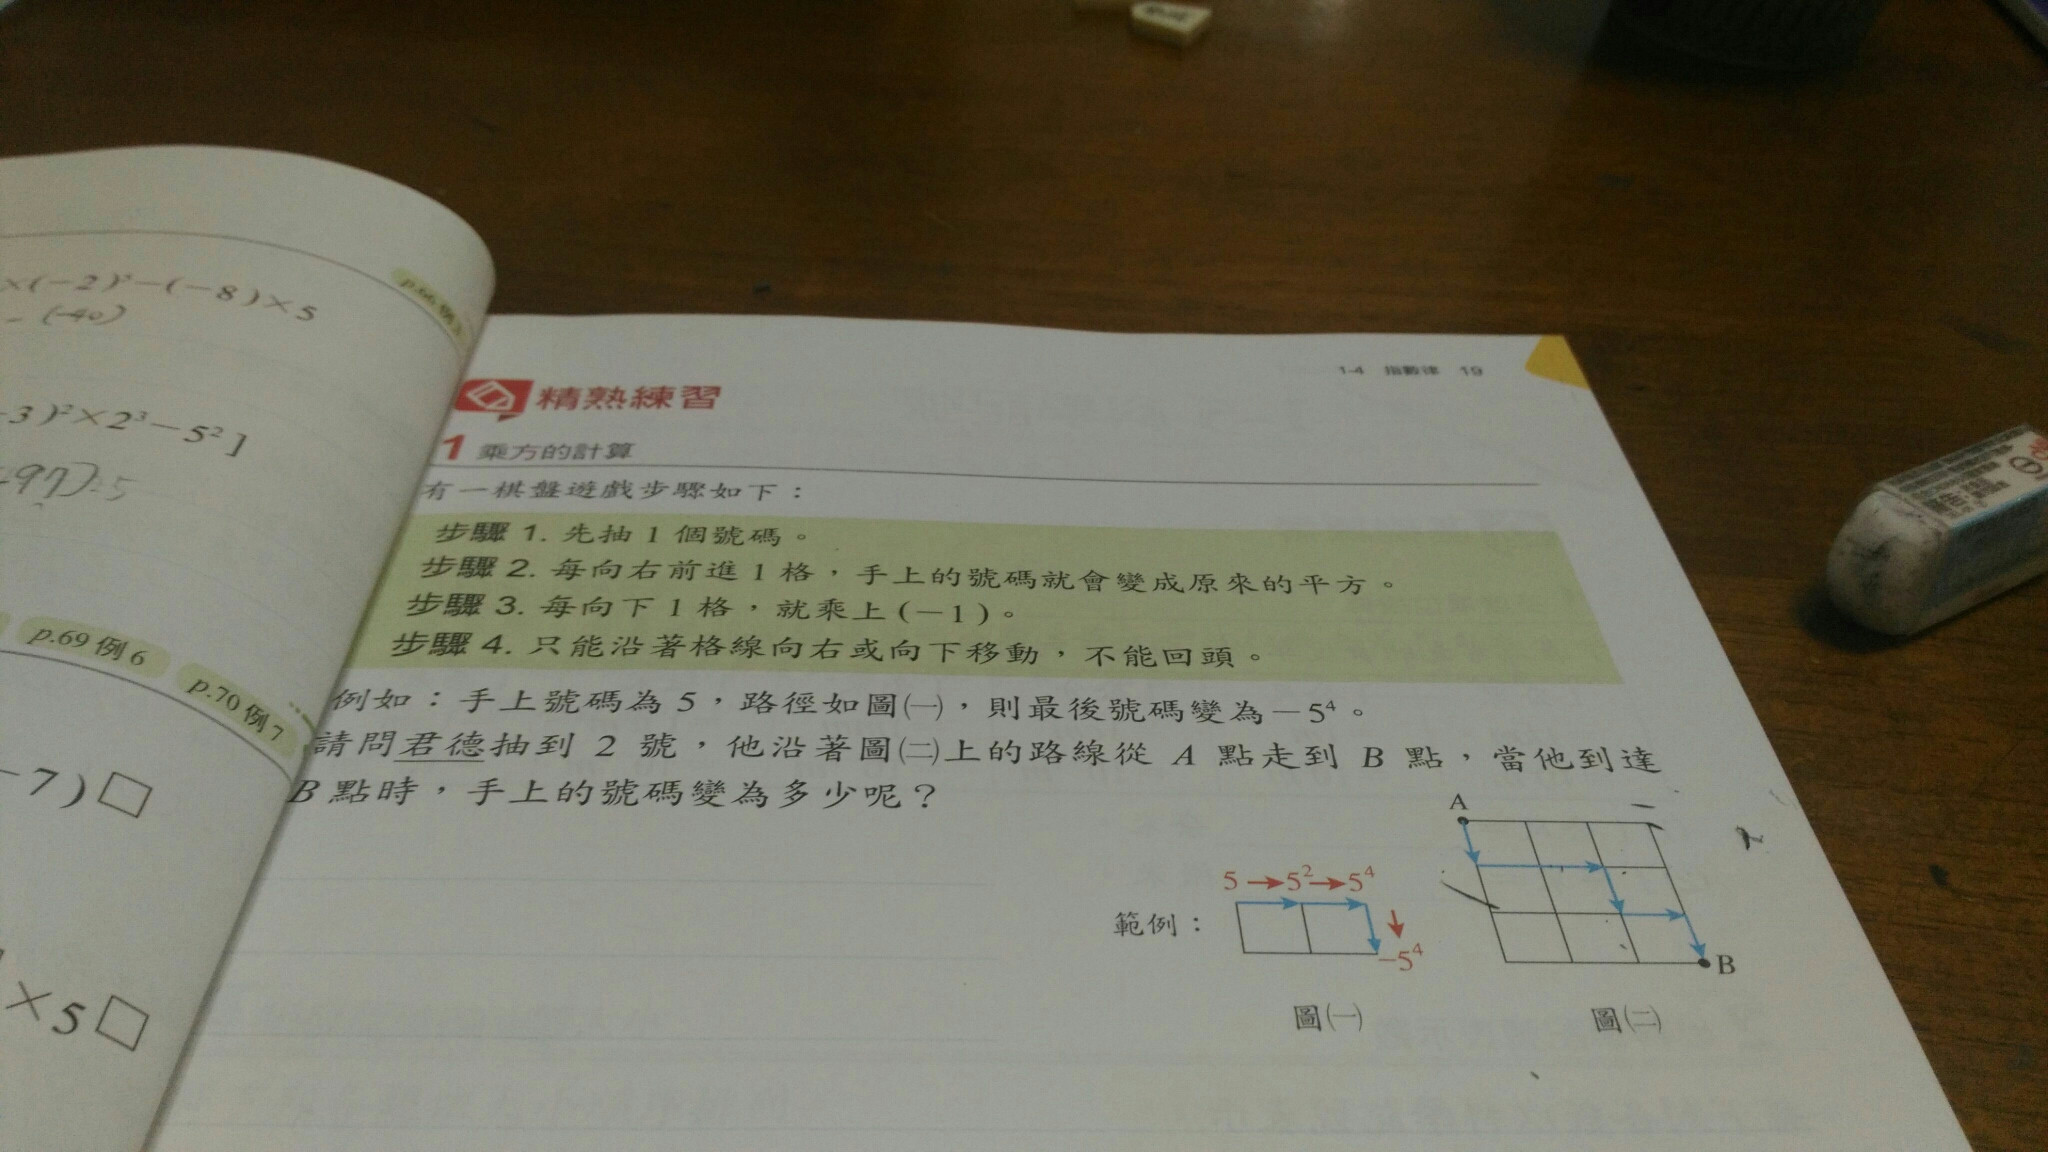 ×(-2)²-(-8)×5
-(-40)
p.66 例
-3)²×2³-5²]
p.69 例 6
p.70 例 7
-7)□
×5□
1-4 指數律 19
精熟練習
1 乘方的計算
有一棋盤遊戲步驟如下：
步驟 1. 先抽 1 個號碼。
步驟 2. 每向右前進 1 格，手上的號碼就會變成原來的平方。
步驟 3. 每向下 1 格，就乘上(-1)。
步驟 4. 只能沿著格線向右或向下移動，不能回頭。
例如：手上號碼為 5，路徑如圖㈠，則最後號碼變為-5⁴。
請問君德抽到 2 號，他沿著圖㈡上的路線從 A 點走到 B 點，當他到達
B 點時，手上的號碼變為多少呢？
範例：
5→5²→5⁴
-5⁴
圖㈠
A
B
圖㈡